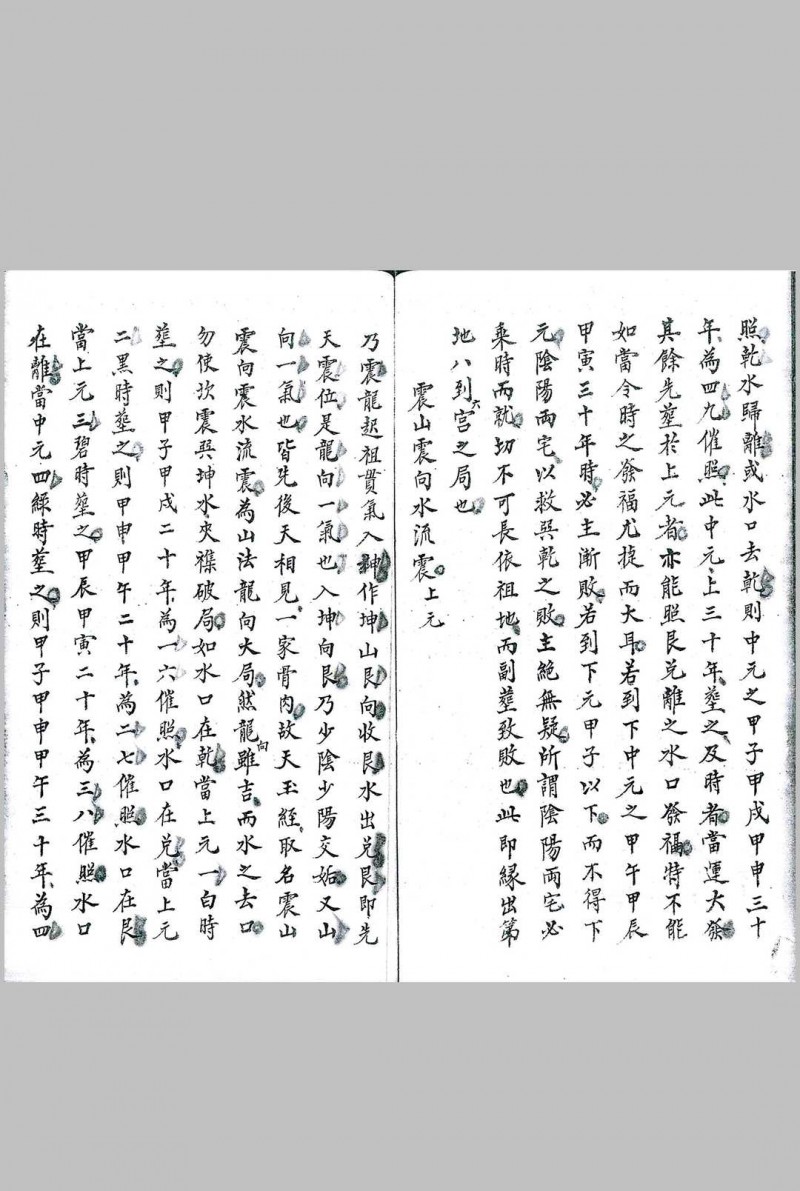 照乾水歸離或水口去乾則中元之甲子甲戌甲申三十
年為四九催照此中元上三十年塟之及時者當運大發
其餘先塟於上元者亦能照艮兌離之水口發福特不能
如當令時之發福尤捷而大耳若到下中元之甲午甲辰
甲寅三十年時必主漸敗若到下元甲子以下而不得下
元陰陽兩宅以救巽乾之敗主絕無疑所謂陰陽兩宅必
乘時而就切不可長依祖地而副塟致敗也此即緣出第
地八到六宫之局也
震山震向水流震上元
乃震龍起祖貫氣入坤作坤山艮向收艮水出兌艮即先
天震位是龍向一氣也入坤向艮乃少陰少陽交姤又山
向一氣也皆先後天相見一家骨肉故天玉經取名震山
震向震水流震為山法龍向大局然龍雖向吉而水之去口
勿使坎震巽坤水夾襍破局如水口在乾當上元一白時
塟之則甲子甲戌二十年為一六催照水口在兌當上元
二黑時塟之則甲申甲午二十年為二七催照水口在艮
當上元三碧時塟之甲辰甲寅二十年為三八催照水口
在離當中元四綠時塟之則甲子甲申甲午三十年為四